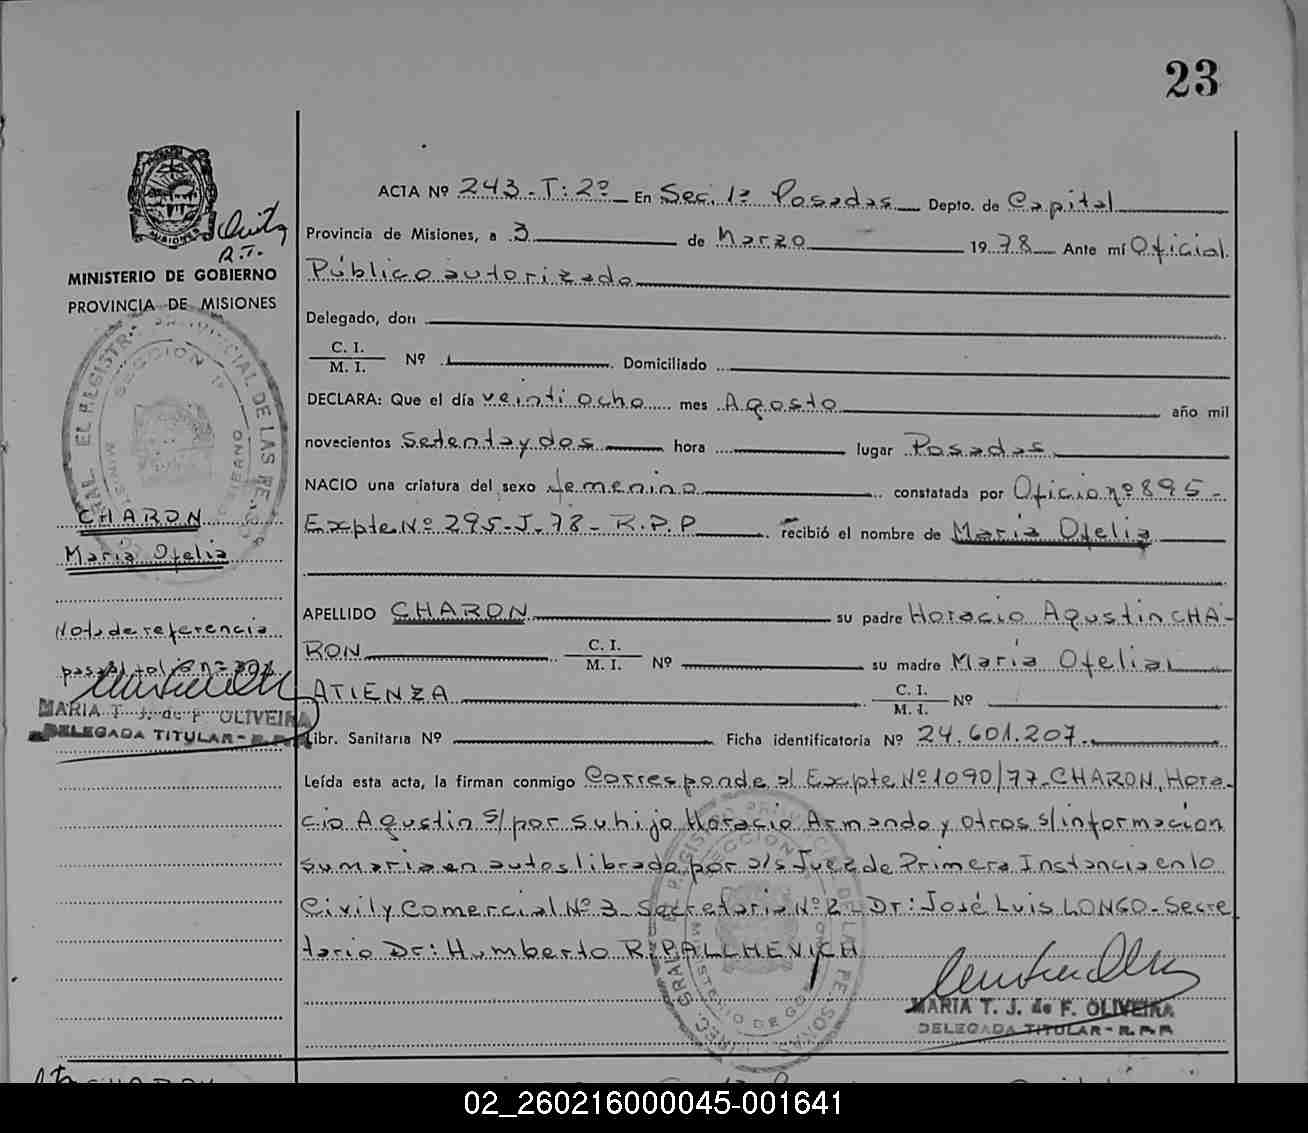 23
ACTA Nº 243-T: 2º En Sec. 1ª Posadas Depto. de Capital
Provincia de Misiones, a 3 de Marzo 1978 Ante mí Oficial
R.T.
MINISTERIO DE GOBIERNO
PROVINCIA DE MISIONES
Público autorizado
Delegado, don
C. I.
M. I. Nº Domiciliado
DECLARA: Que el día veintiocho mes Agosto año mil
novecientos Setenta y dos hora lugar Posadas
NACIO una criatura del sexo femenino constatada por Oficio nº 895-
CHARON
Expte Nº 295-J-78-R.P.P recibió el nombre de María Ofelia
María Ofelia
APELLIDO CHARON su padre Horacio Agustin CHA-
Nota de referencia
RON C. I.
M. I. Nº su madre María Ofelia
pasa al folio nº
ATIENZA C. I.
M. I. Nº
MARIA T. J. de F. OLIVEIRA
DELEGADA TITULAR - R.P.P.
Libr. Sanitaria Nº Ficha identificatoria Nº 24.601.207
Leída esta acta, la firman conmigo Corresponde al Expte Nº 1090/77-CHARON, Hora-
cio Agustin s/ por su hijo Horacio Armando y otros s/ información
sumaria en autos librado por a/s Juez de Primera Instancia en lo
Civil y Comercial Nº 3 Secretaria Nº 2 - Dr: José Luis LONGO - Secre
tario Dr: Humberto R. PALCHEVICH
MARIA T. J. de F. OLIVEIRA
DELEGADA TITULAR - R.P.P.
CHARON
02_260216000045-001641